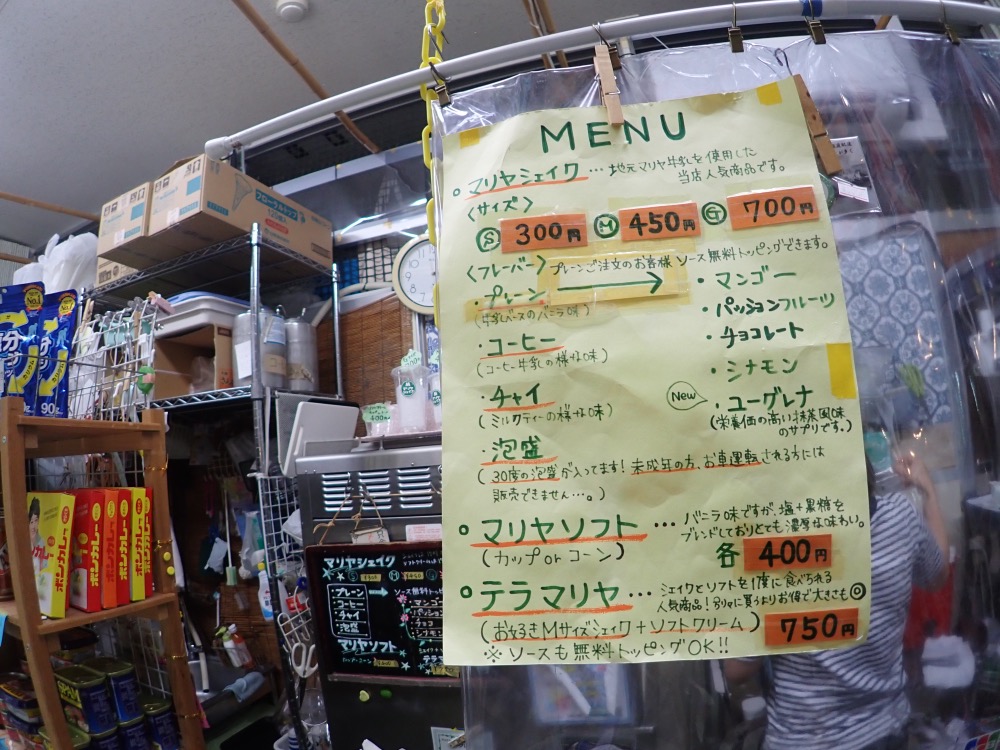 MENU
マリヤシェイク … 地元マリヤ牛乳を使用した
当店人気商品です。
〈サイズ〉
S 300円 M 450円 G 700円
〈フレーバー〉 プレーンご注文のお客様 ソース無料トッピングできます。
・プレーン
(牛乳ベースのバニラ味)
・コーヒー
(コーヒー牛乳の様な味)
・チャイ
(ミルクティーの様な味)
・泡盛
(30度の泡盛が入ってます!未成年の方、お車運転される方には
販売できません…。)
・マンゴー
・パッションフルーツ
・チョコレート
・シナモン
New
・ユーグレナ
(栄養価の高い抹茶風味
のサプリです。)
マリヤソフト … バニラ味ですが、塩+黒糖を
ブレンドしておりとても濃厚な味わい。
(カップorコーン) 各 400円
テラマリヤ … シェイクとソフトを1度に食べられる
人気商品!別々に買うよりお得で大きさも◎
(お好きMサイズシェイク+ソフトクリーム) 750円
※ソースも無料トッピングOK!!
マリヤシェイク
プレーン
コーヒー
チャイ
泡盛
マンゴー
チョコ
シナモン
マリヤソフト
テラ
ボンカレー
ボンカレー
ボンカレー
No.1
90g
SPAM